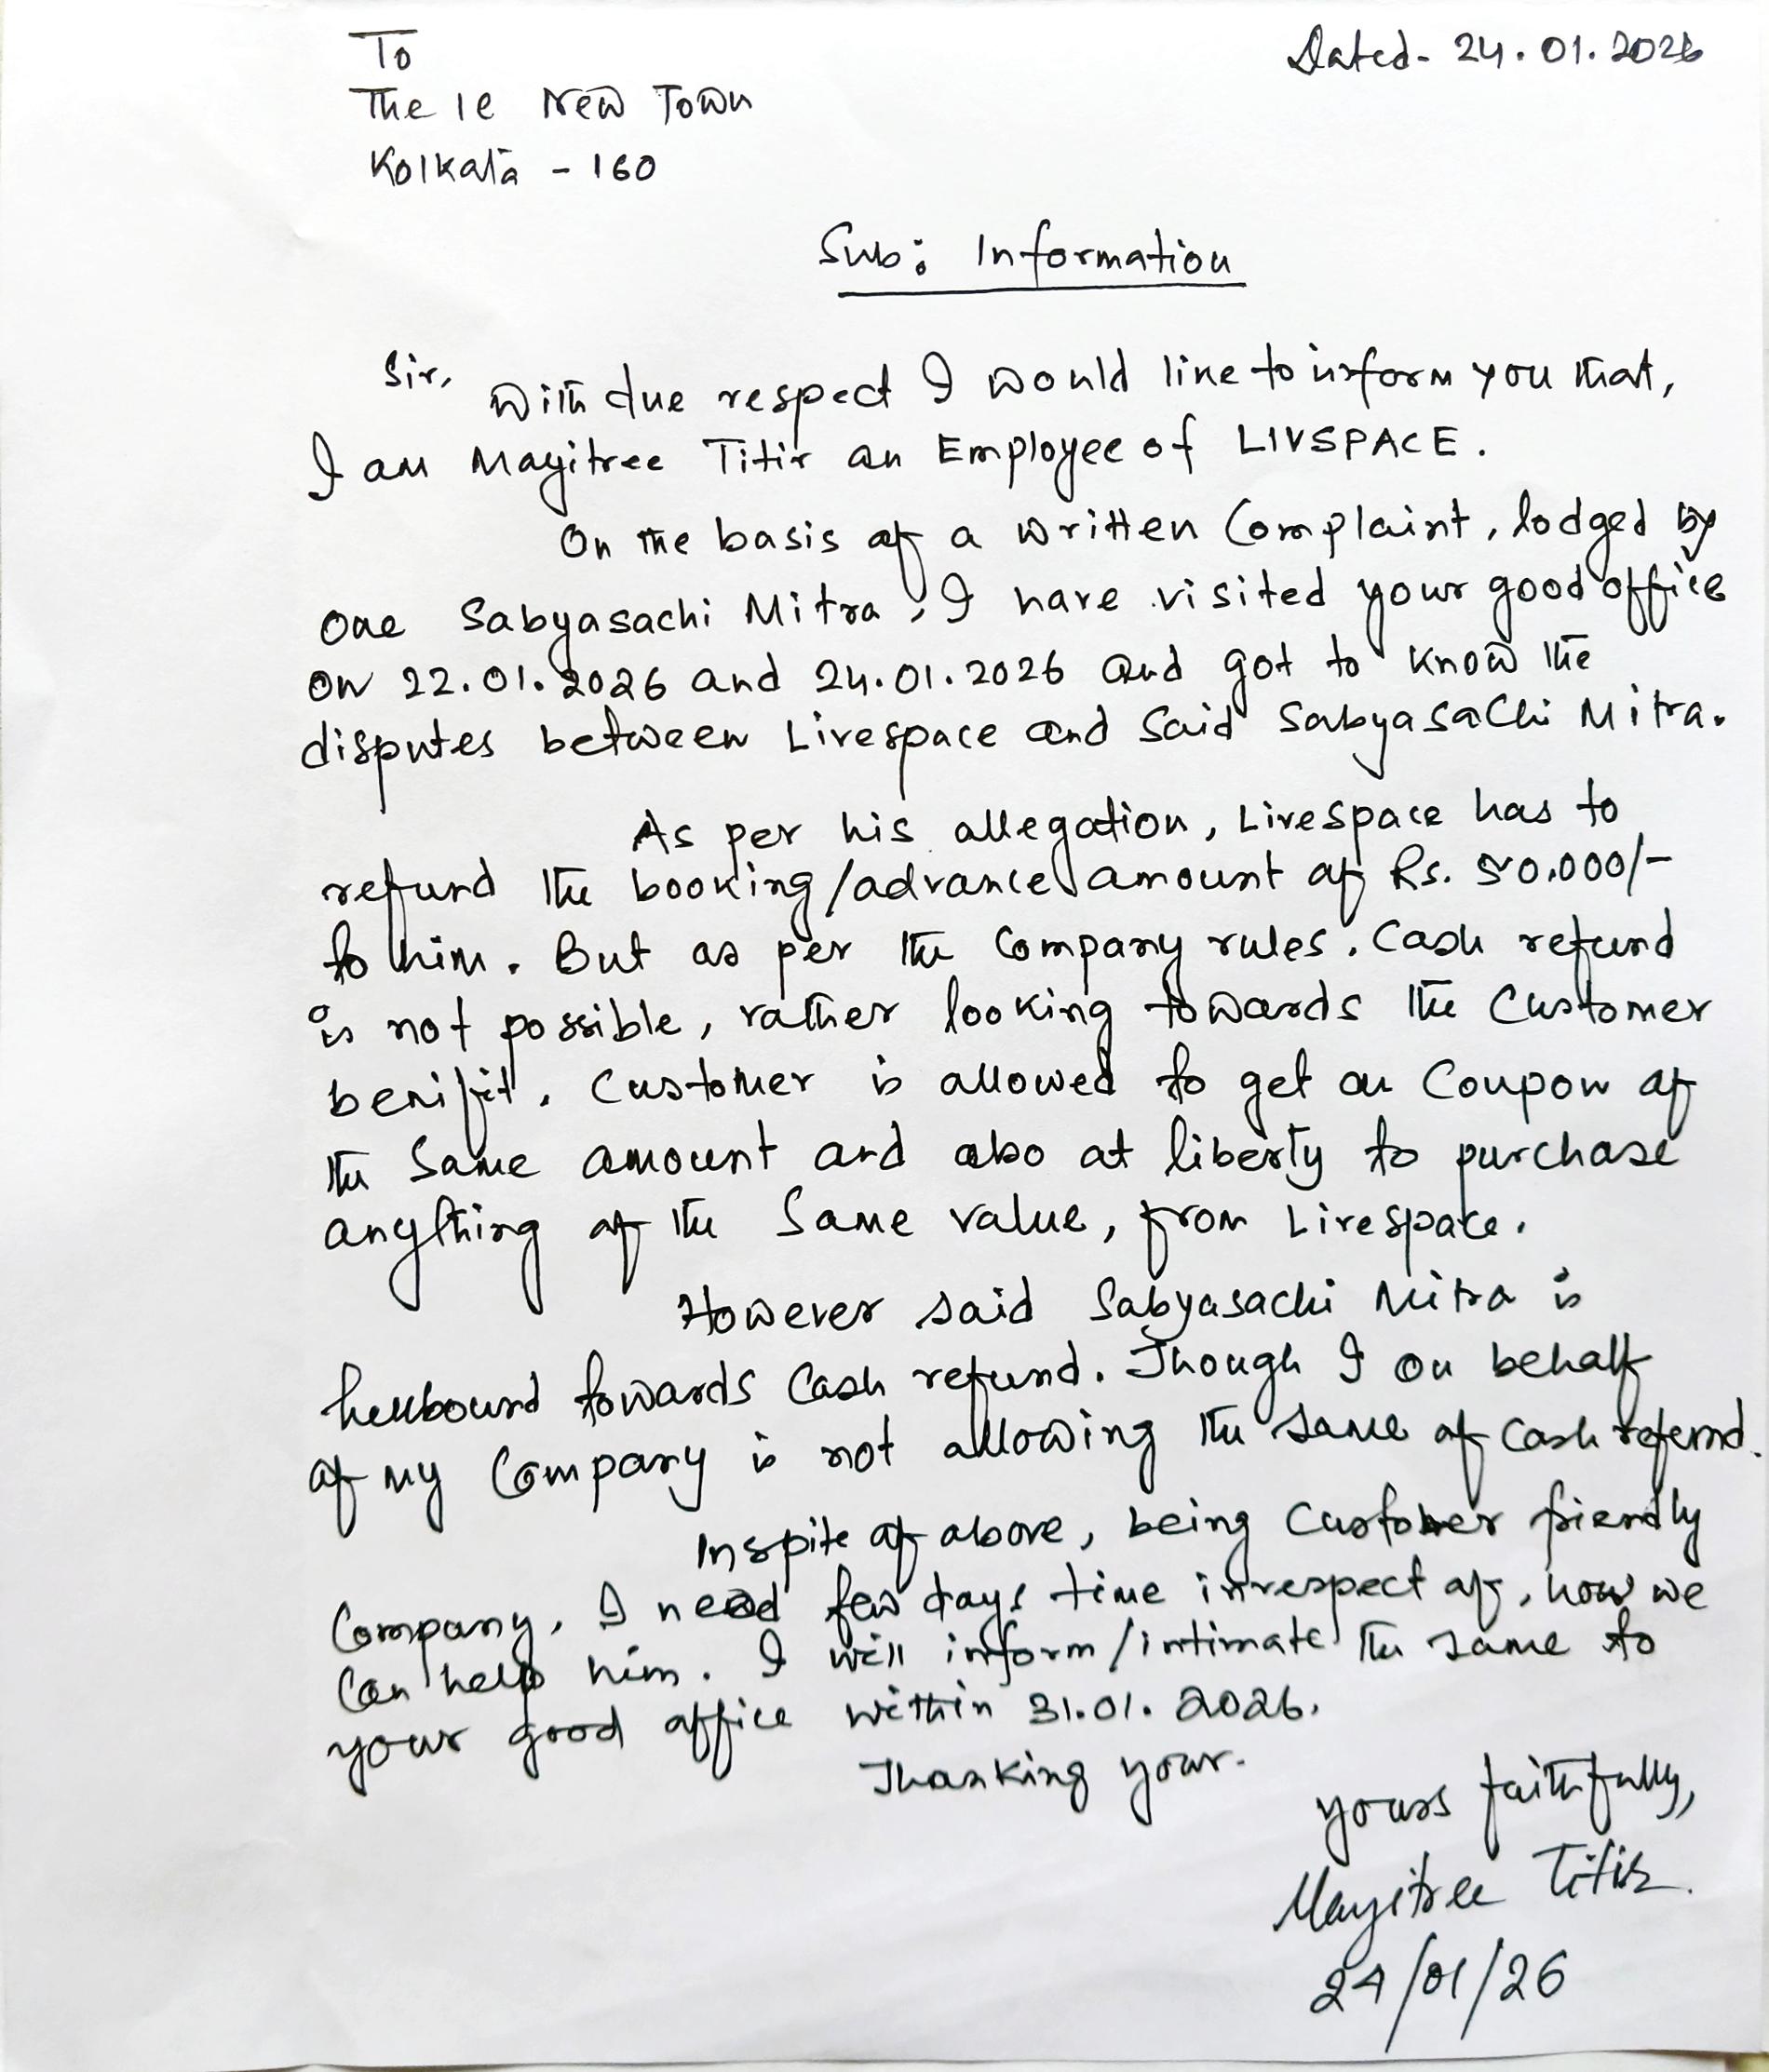 To
Dated- 24.01.2026
The Ie New Town
Kolkata - 160
Sub: Information
Sir,
With due respect I would like to inform you that,
I am Mayitree Titir an Employee of LIVSPACE.
On the basis of a written Complaint, lodged by
one Sabyasachi Mitra, I have visited your good office
on 22.01.2026 and 24.01.2026 and got to know the
disputes between Livespace and Said Sabyasachi Mitra.
As per his allegation, Livespace has to
refund the booking/advance amount of Rs. 50,000/-
to him. But as per the Company rules. Cash refund
is not possible, rather looking towards the Customer
benifit. Customer is allowed to get an Coupon of
the Same amount and also at liberty to purchase
anything of the Same value, from Livespace.
However said Sabyasachi Mitra is
hellbound towards Cash refund. Though I on behalf
of my Company is not allowing the same of Cash refund.
Inspite of above, being Customer friendly
Company, I need few days time irrespect of, how we
Can help him. I will inform/intimate the same to
your good office within 31.01.2026.
Thanking your.
yours faithfully,
Mayitree Titir.
24/01/26